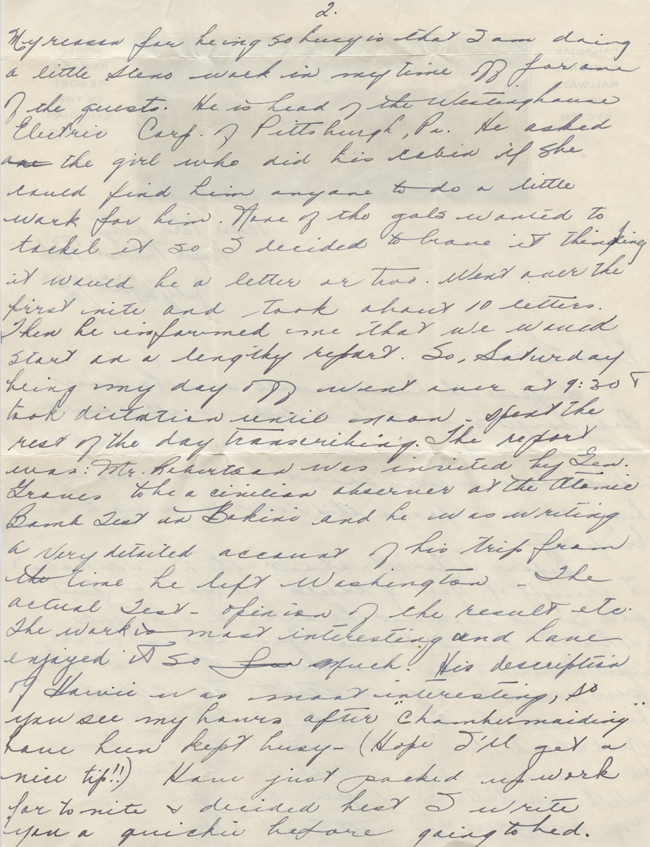 2.
My reason for being so busy is that I am doing
a little steno work in my time off for one
of the guests. He is head of the Westinghouse
Electric Corp. of Pittsburgh, Pa. He asked
the girl who did his cabin if she
could find him anyone to do a little
work for him. None of the gals wanted to
tackel it so I decided to have it thinking
it would be a letter or two. Went over the
first nite and took about 10 letters.
Then he informed me that we would
start on a lengthy report. So, Saturday
being my day off went over at 9:30 &
took dictation until noon - spent the
rest of the day transcribing. The report
was: Mr. Robertson was invited by Gen.
Groves to be a civilian observer at the Atomic
Bomb Test in Bakini and he was writing
a very detailed account of his trip from
the time he left Washington - The
actual Test - opinion of the result etc.
The work is most interesting and have
enjoyed it so much. His description
of Hawii was most interesting, so
you see my hours after "Chambermaiding"
have been kept busy - (Hope I'll get a
nice tip!!) Have just packed up work
for to nite & decided best I write
you a quickie before going to bed.